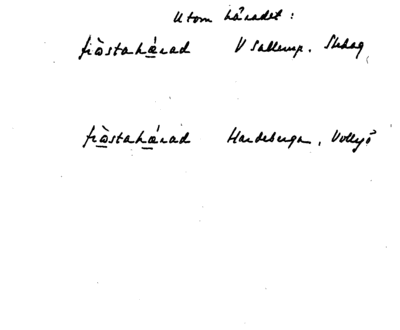 Utom häradet:
frò̲stahá̲rad V Sallerup, Stehag
frò̲stahá̲rad Hardeberga, Vollsjö